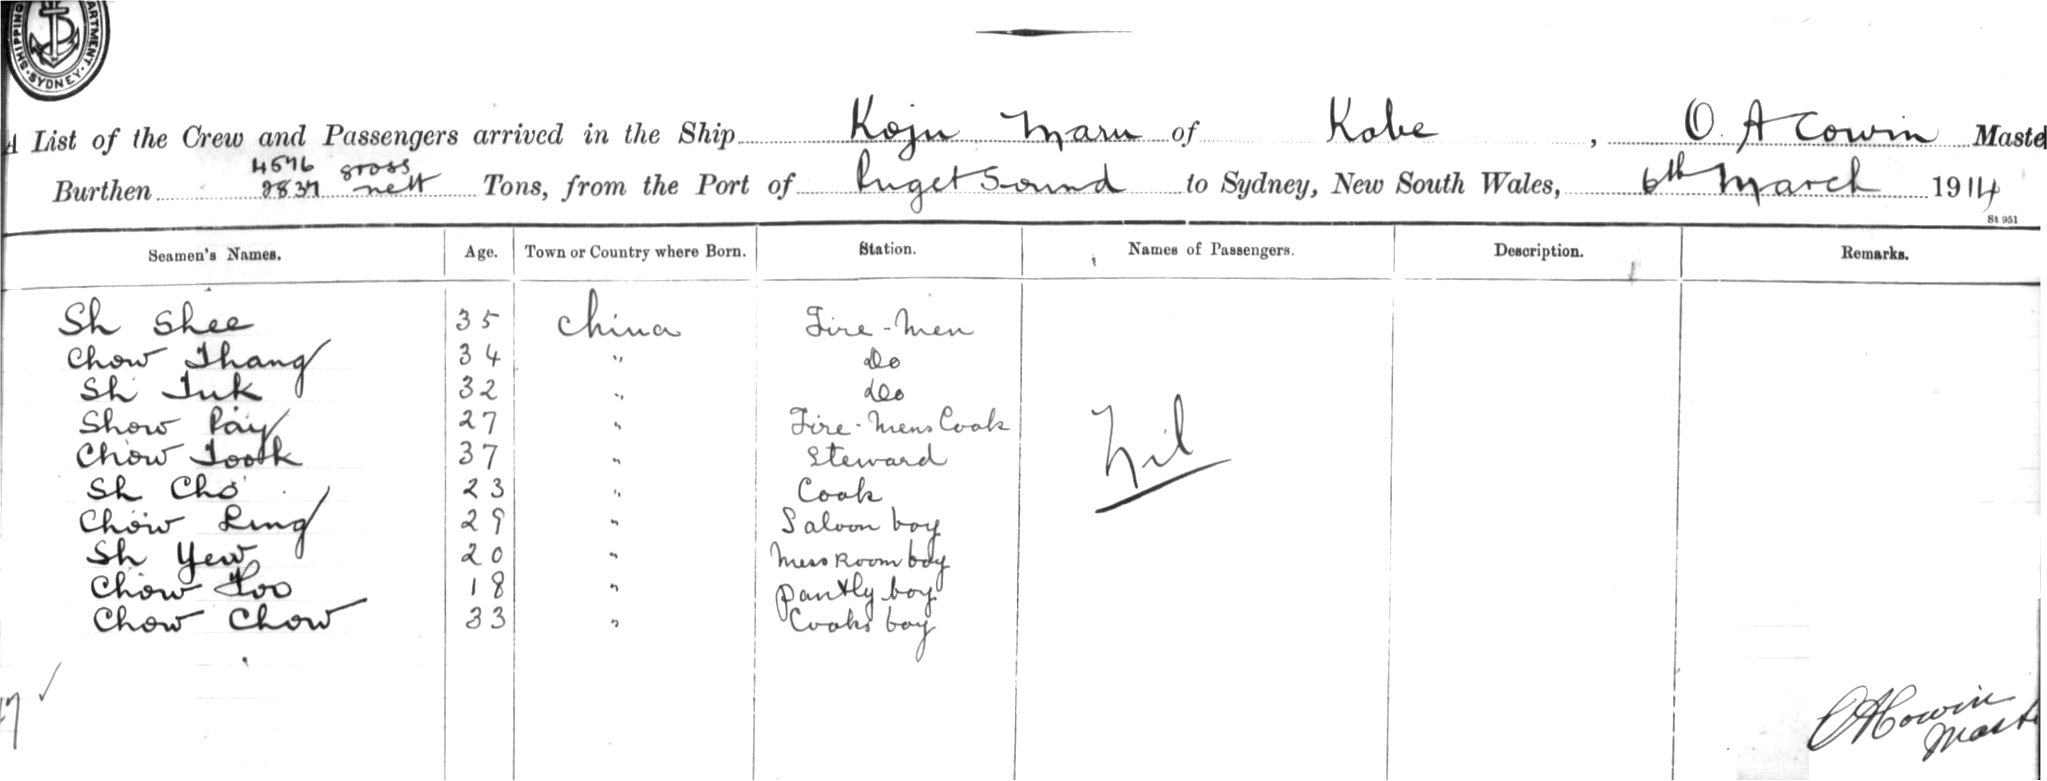 SHIPPING DEPARTMENT. SYDNEY.
A List of the Crew and Passengers arrived in the Ship Koju Maru of Kobe, O. A Cowin Maste
4576 gross
Burthen 2837 nett Tons, from the Port of Puget Sound to Sydney, New South Wales, 6th March 1914
St 951
Seamen's Names. Age. Town or Country where Born. Station. Names of Passengers. Description. Remarks.
Sh Shee 35 China Fire-Men
Chow Thang 34 " Do
Sh Tuk 32 " Do
Show Pay 27 " Fire-Mens Cook
Chow Toook 37 " Steward
Nil
Sh Cho 23 " Cook
Chow Ling 29 " Saloon boy
Sh Yew 20 " Mess Room boy
Chow Foo 18 " pantly boy
Chow Chow 33 " Cooks boy
OACowin
Maste